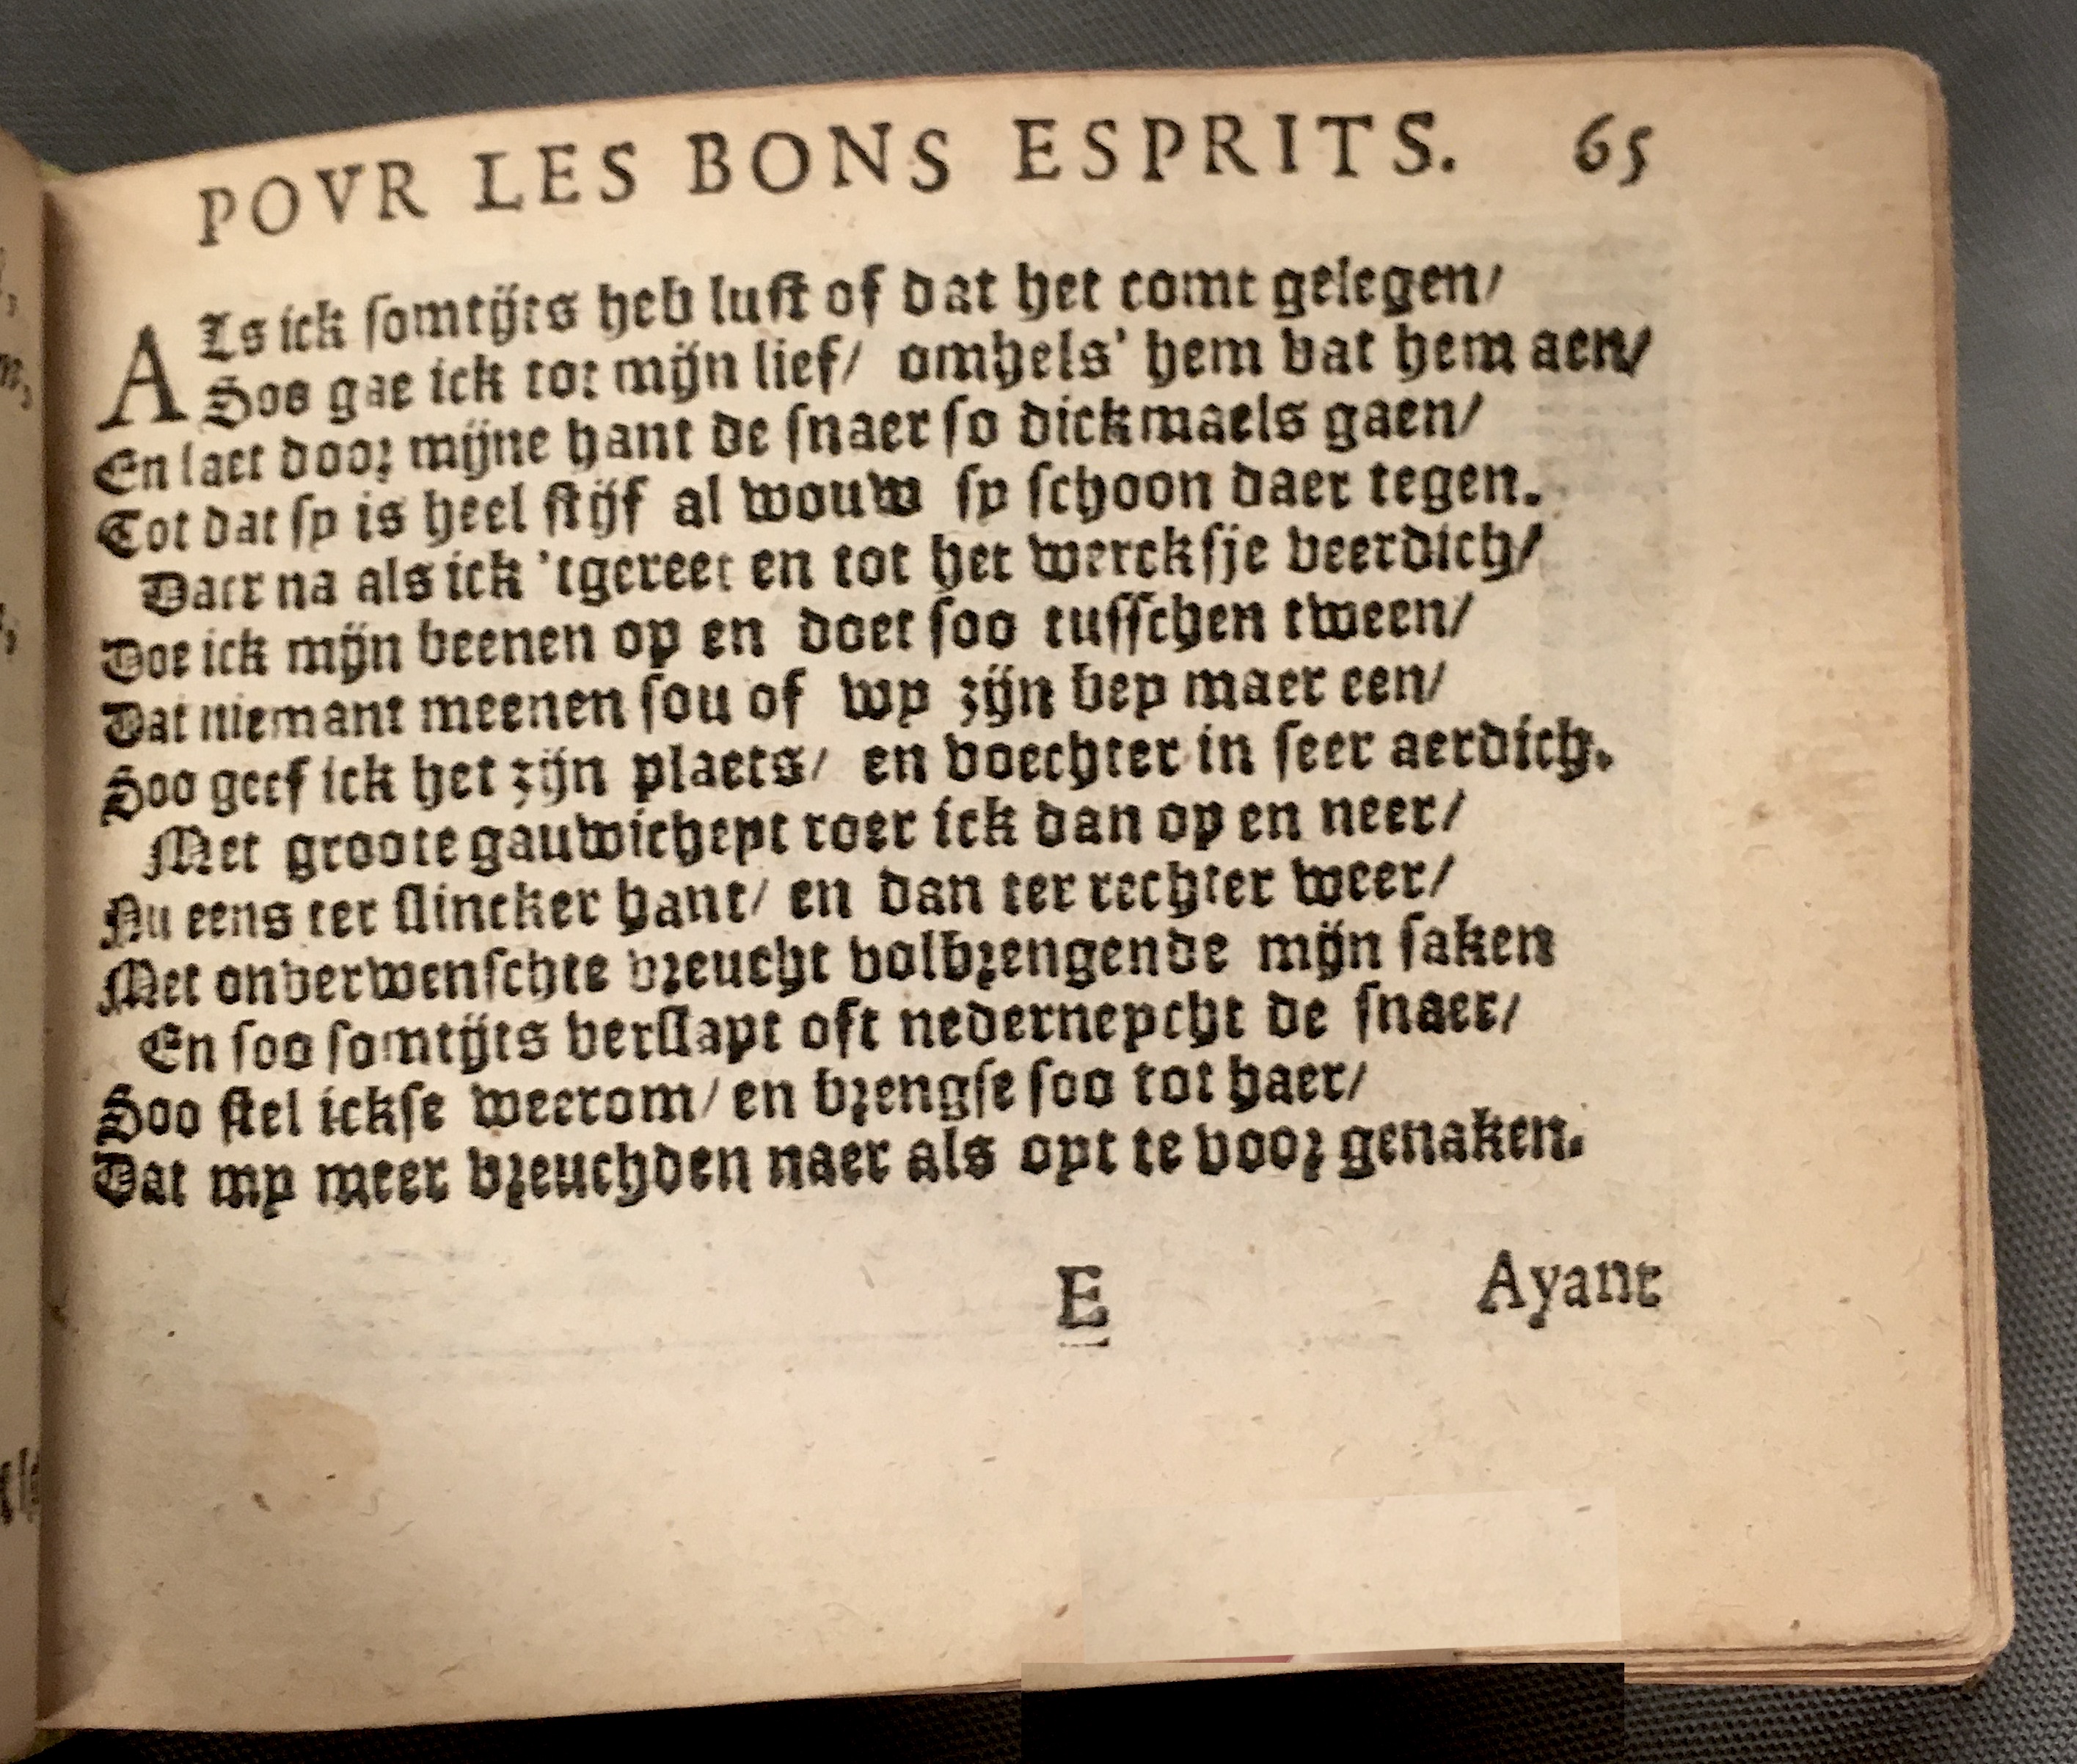 POVR LES BONS ESPRITS. 65
ALs ick ſomtijts heb luſt of dat het comt gelegen/
Soo gae ick tot mijn lief/ omhels' hem vat hem aen/
En laet door mijne hant de ſnaer ſo dickmaels gaen/
Tot dat ſy is heel ſtijf al wouw ſy ſchoon daer tegen.
Daer na als ick 'tgereet en tot het werckſje veerdich/
Doe ick mijn beenen op en doet ſoo tuſſchen tween/
Dat niemant meenen ſou of wy zijn bey maer een/
Soo geef ick het zijn plaets/ en voechter in ſeer aerdich.
Met groote gauwicheyt roer ick dan op en neer/
Nu eens ter ſlincker hant/ en dan ter rechter weer/
Met onverwenſchte vreucht volbrengende mijn ſaken
En ſoo ſomtijts verſlapt oft nederneycht de ſnaer/
Soo ſtel ickſe weerom/ en brengſe ſoo tot haer/
Dat my meer vreuchden naer als oyt te voor genaken.
E Ayant